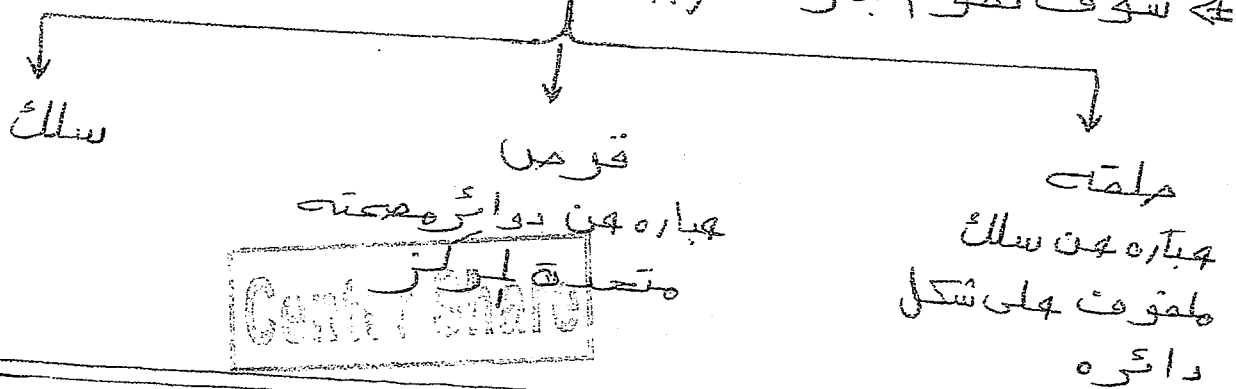 سوف نقوم
حلقه
عباره عن سلك
ملفوف على شكل
دائره
قرص
عباره عن دوائر مصمته
متحدة المركز
سلك